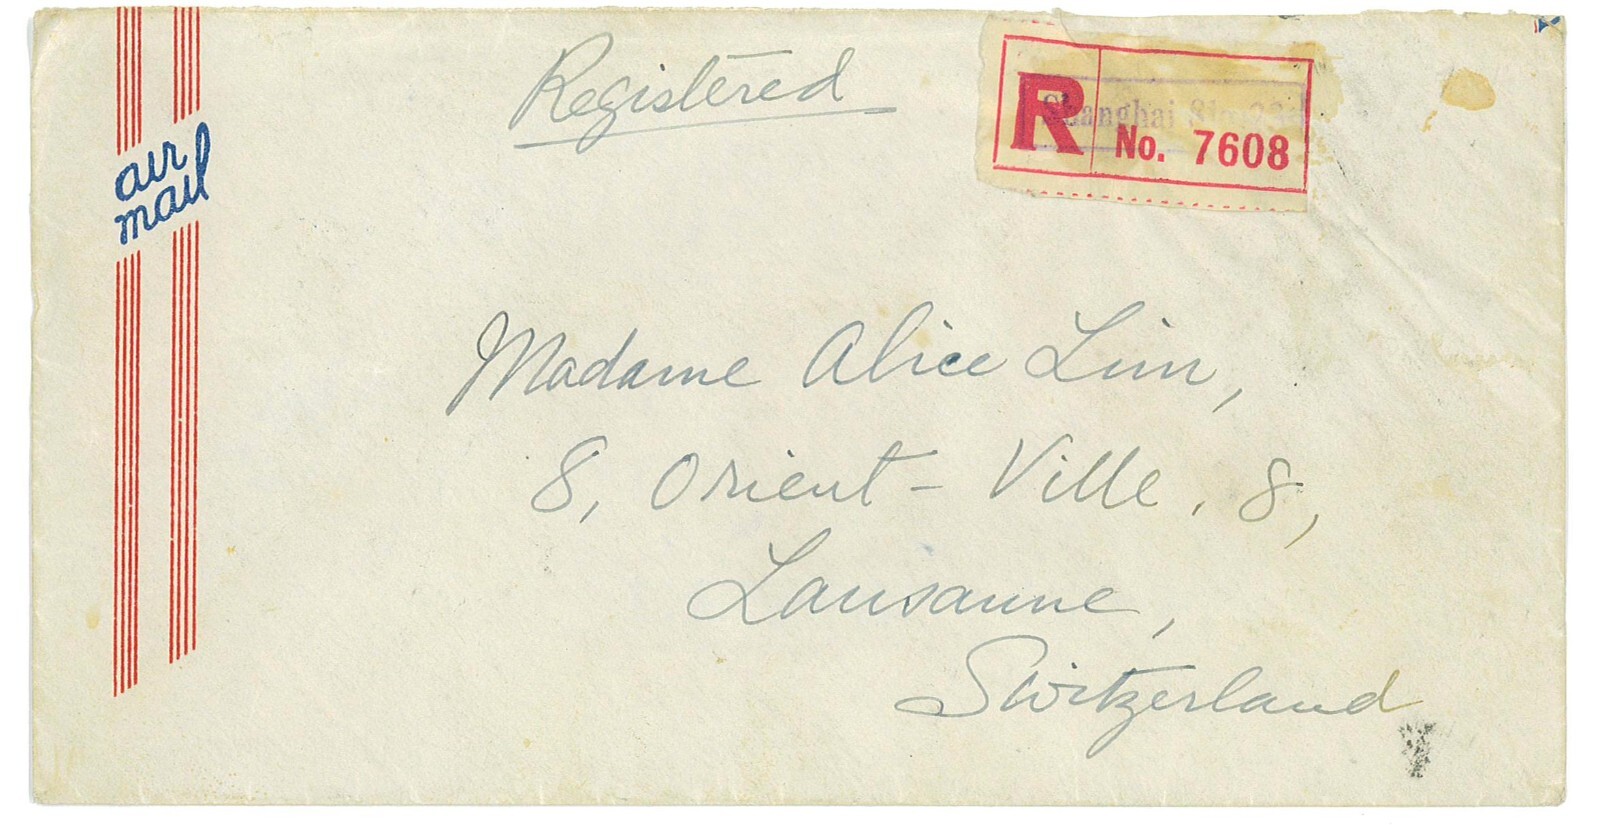 Registered
R
Shanghai
No. 7608
air
mail
Madame Alice Lim,
8, Orient-Ville, 8,
Lausanne,
Switzerland